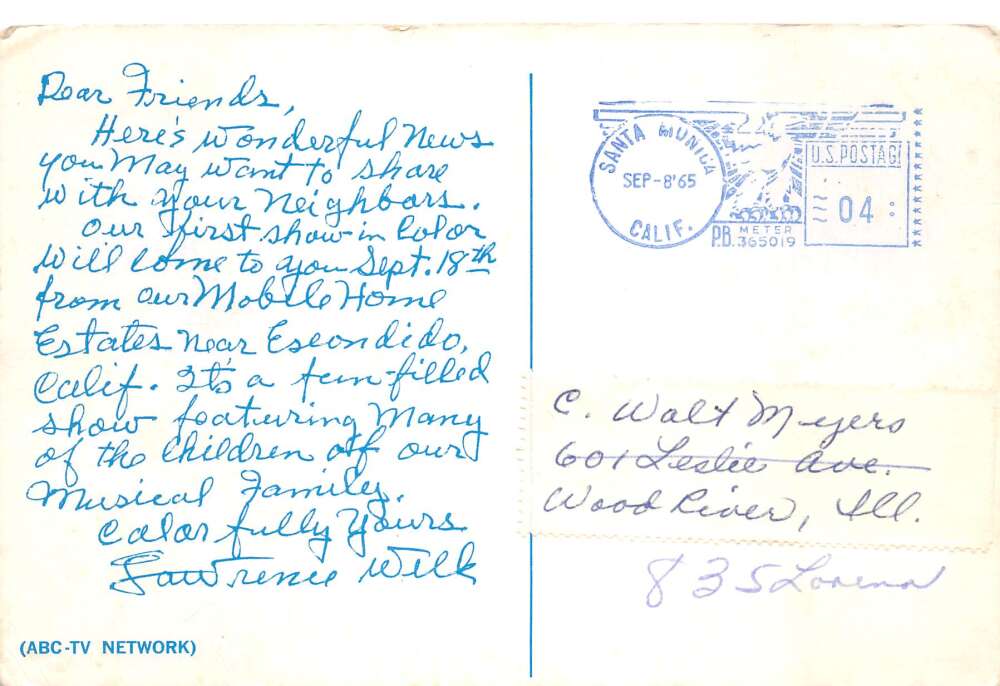 Dear Friends,
Here's wonderful News
you May want to share
with your Neighbors.
Our first show in Color
will come to you Sept. 18th
from our Mobile Home
Estates Near Escondido,
Calif. It's a fun-filled
show featuring Many
of the Children of our
Musical Family.
Colorfully Yours
Lawrence Welk
(ABC-TV NETWORK)
SANTA MONICA
SEP-8'65
CALIF.
U.S. POSTAG
04
P.B. METER
365019
C. Walt Meyers
601 Leslie Ave.
Wood River, Ill.
835 Lorena